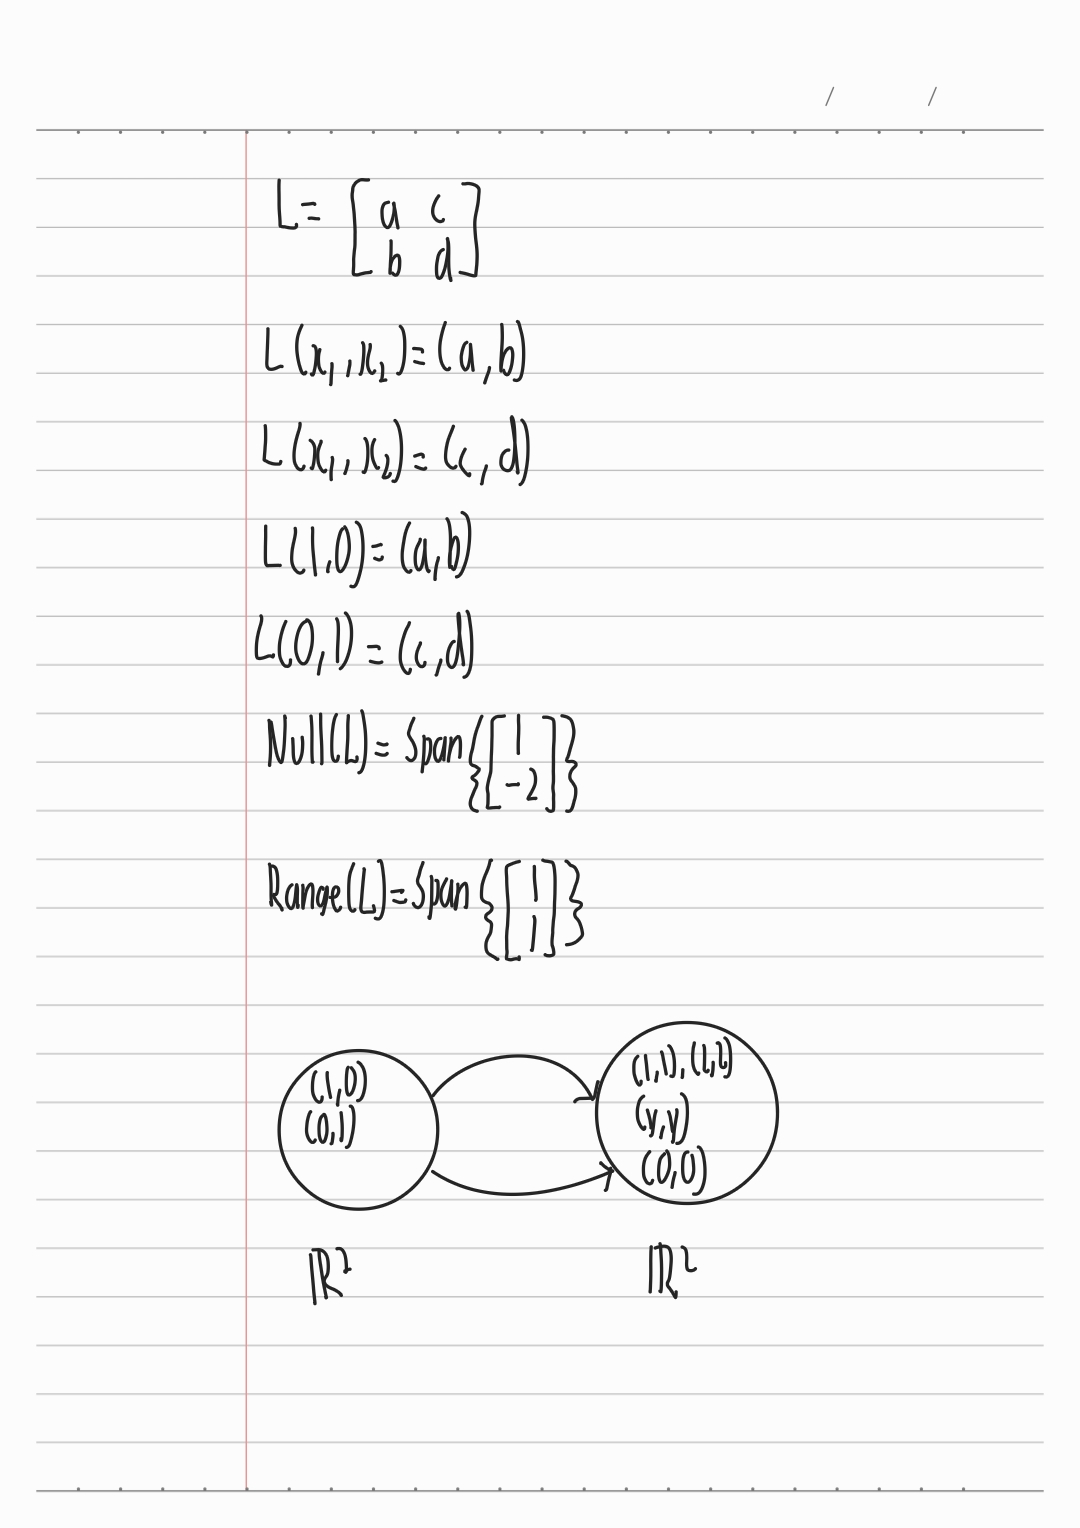 L = [a c
b d]
L(x₁, x₂) = (a, b)
L(x₁, x₂) = (c, d)
L(1,0) = (a, b)
L(0,1) = (c, d)
Null(L) = Span{[1
-2]}
Range(L) = Span{[1
1]}
(1,0)
(0,1)
(1,1), (2,2)
(y,y)
(0,0)
ℝ² ℝ²